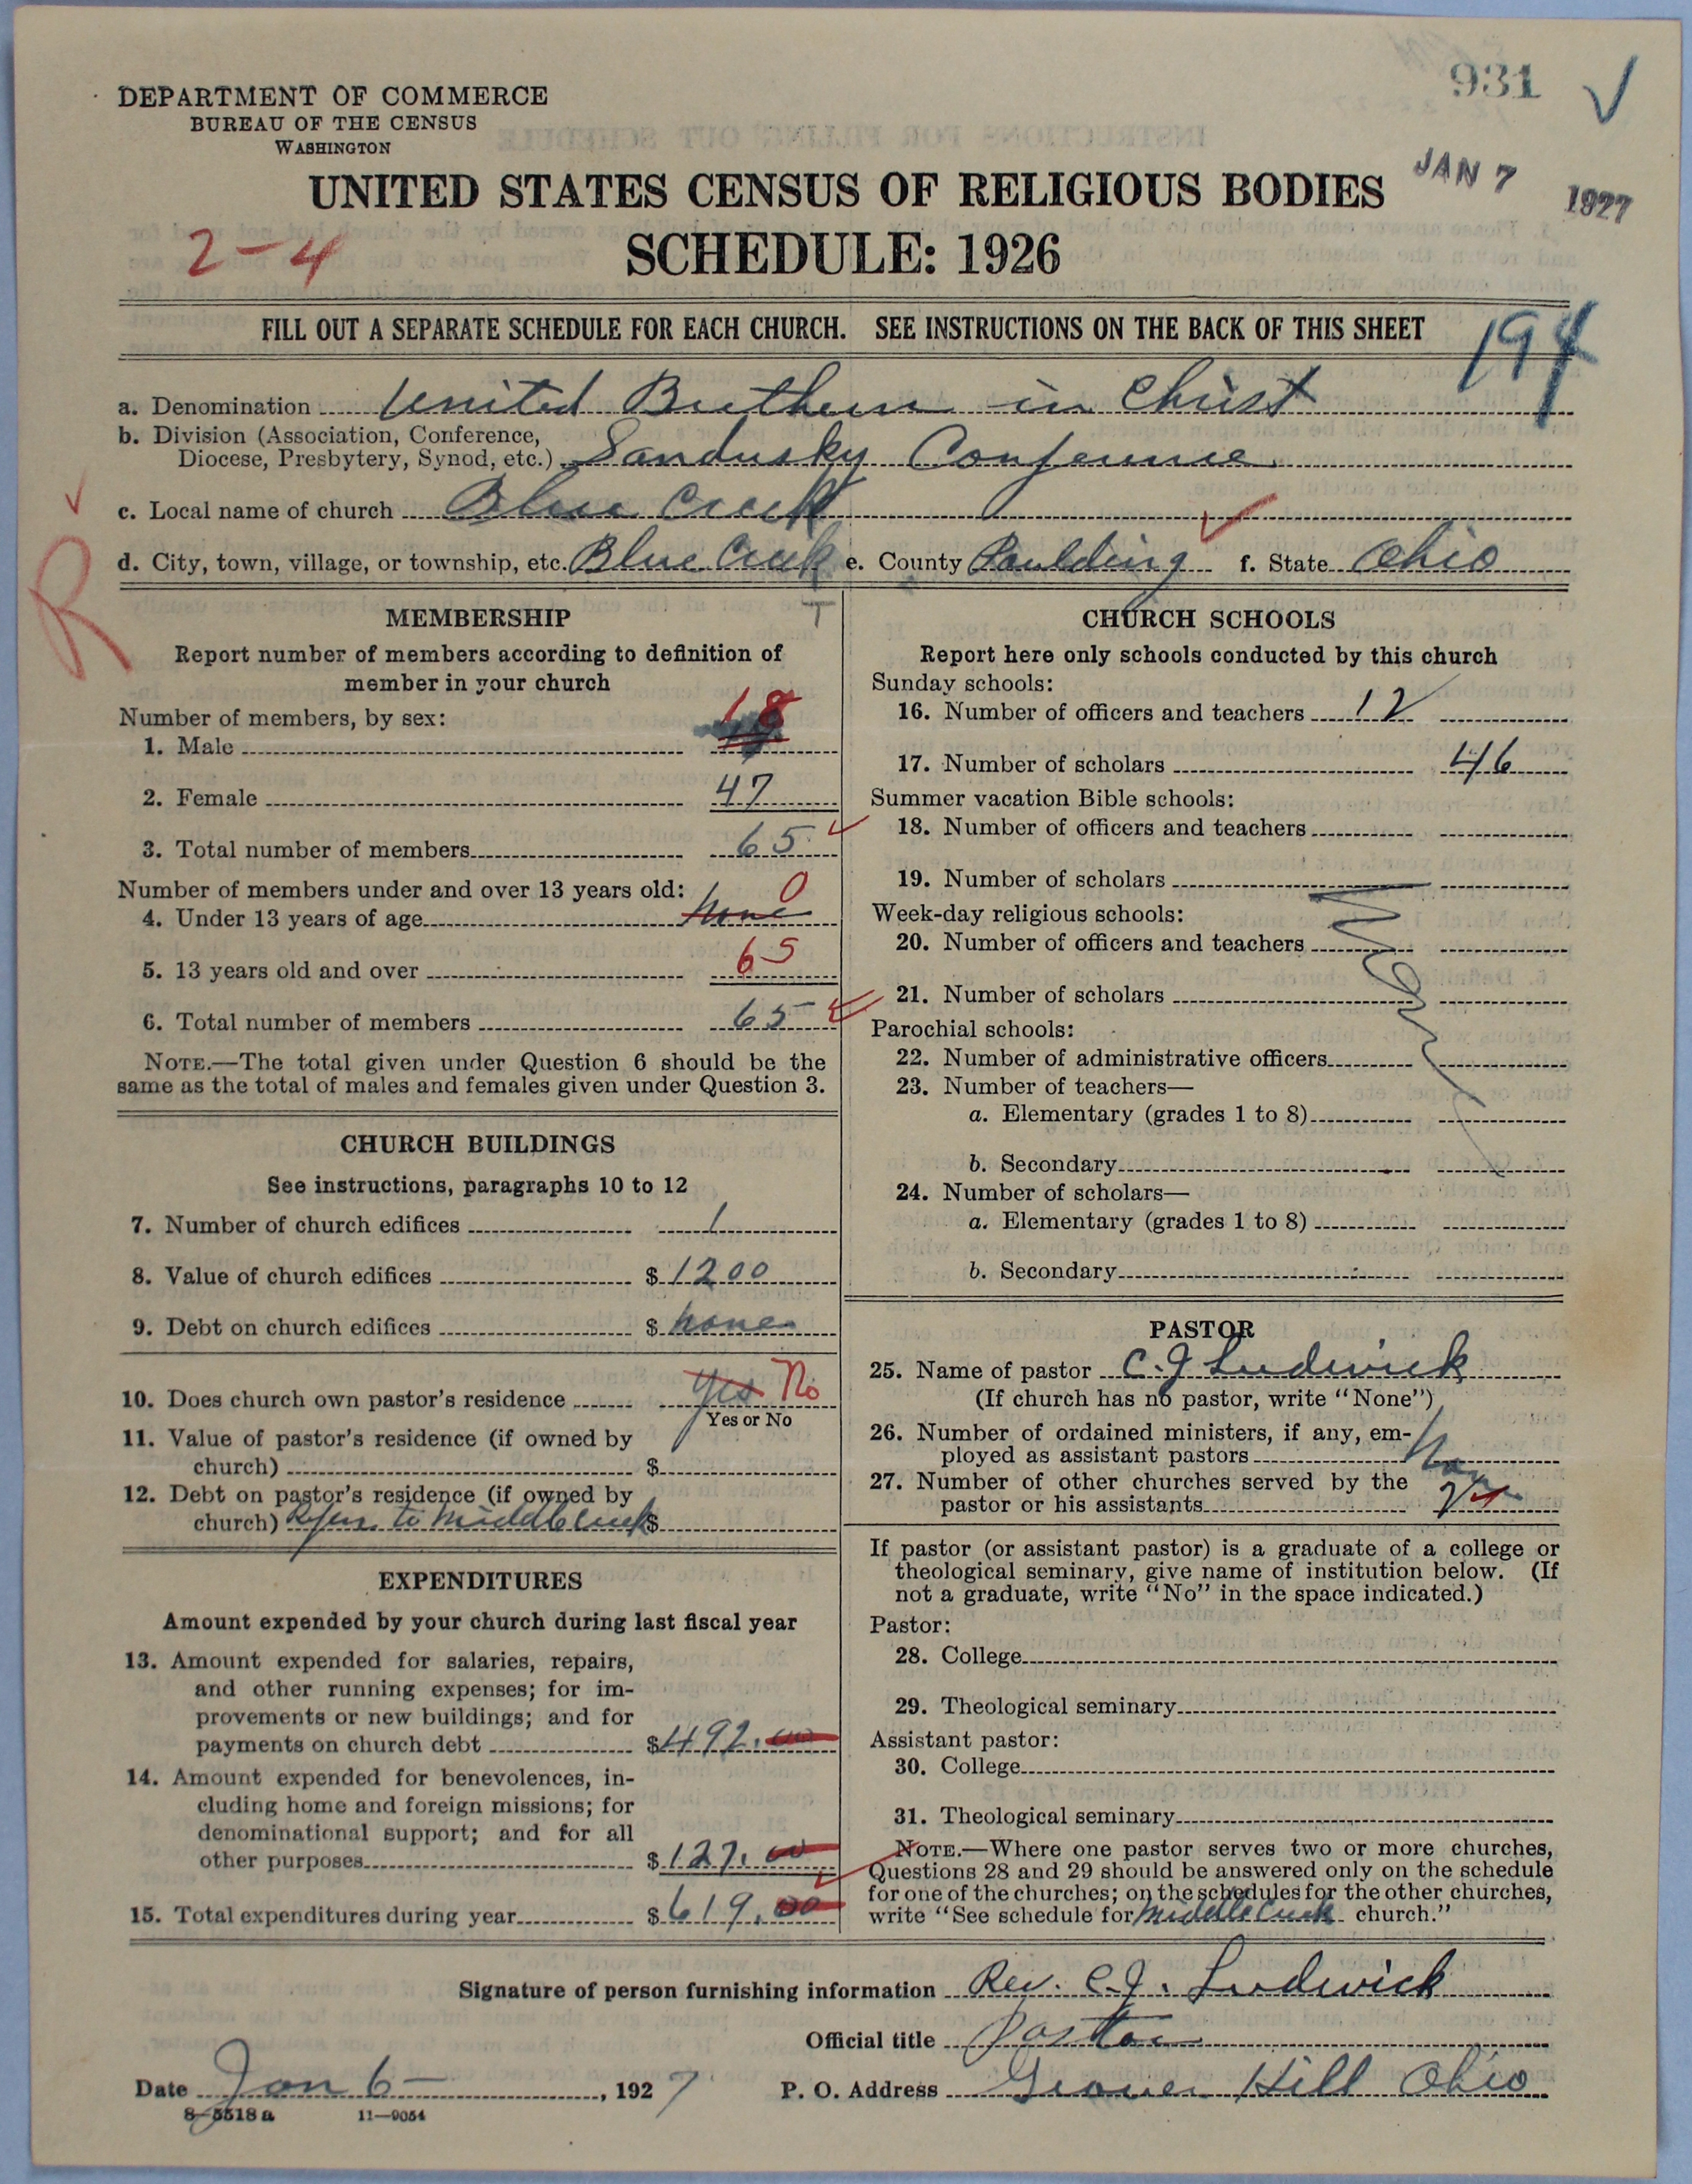 931
DEPARTMENT OF COMMERCE
BUREAU OF THE CENSUS
WASHINGTON
UNITED STATES CENSUS OF RELIGIOUS BODIES
JAN 7 1927
2-4
SCHEDULE: 1926
FILL OUT A SEPARATE SCHEDULE FOR EACH CHURCH. SEE INSTRUCTIONS ON THE BACK OF THIS SHEET
194
a. Denomination United Brethren in Christ
b. Division (Association, Conference,
Diocese, Presbytery, Synod, etc.) Sandusky Conference
c. Local name of church Blue Creek
d. City, town, village, or township, etc. Blue Creek e. County Paulding f. State Ohio
R
T
MEMBERSHIP
Report number of members according to definition of
member in your church
Number of members, by sex:
1. Male 18
2. Female 47
3. Total number of members 65
Number of members under and over 13 years old:
4. Under 13 years of age none 0
5. 13 years old and over 65
6. Total number of members 65
NOTE.—The total given under Question 6 should be the
same as the total of males and females given under Question 3.
CHURCH BUILDINGS
See instructions, paragraphs 10 to 12
7. Number of church edifices 1
8. Value of church edifices $1200
9. Debt on church edifices $ none
10. Does church own pastor's residence yes No
Yes or No
11. Value of pastor's residence (if owned by
church) $
12. Debt on pastor's residence (if owned by
church) Refer to Middle Creek $
EXPENDITURES
Amount expended by your church during last fiscal year
13. Amount expended for salaries, repairs,
and other running expenses; for im-
provements or new buildings; and for
payments on church debt $492.00
14. Amount expended for benevolences, in-
cluding home and foreign missions; for
denominational support; and for all
other purposes $127.00
15. Total expenditures during year $619.00
CHURCH SCHOOLS
Report here only schools conducted by this church
Sunday schools:
16. Number of officers and teachers 12
17. Number of scholars 46
Summer vacation Bible schools:
18. Number of officers and teachers
19. Number of scholars
Week-day religious schools:
20. Number of officers and teachers
21. Number of scholars
Parochial schools:
22. Number of administrative officers
23. Number of teachers—
a. Elementary (grades 1 to 8)
b. Secondary
24. Number of scholars—
a. Elementary (grades 1 to 8)
b. Secondary
PASTOR
25. Name of pastor C. J Ludwick
(If church has no pastor, write "None")
26. Number of ordained ministers, if any, em-
ployed as assistant pastors
27. Number of other churches served by the
pastor or his assistants
If pastor (or assistant pastor) is a graduate of a college or
theological seminary, give name of institution below. (If
not a graduate, write "No" in the space indicated.)
Pastor:
28. College
29. Theological seminary
Assistant pastor:
30. College
31. Theological seminary
NOTE.—Where one pastor serves two or more churches,
Questions 28 and 29 should be answered only on the schedule
for one of the churches; on the schedules for the other churches,
write "See schedule for Middle Creek church."
Signature of person furnishing information Rev. C. J. Ludwick
Official title Pastor
Date Jan 6 — , 1927 P. O. Address Grover Hill Ohio
8-5518a 11—9054